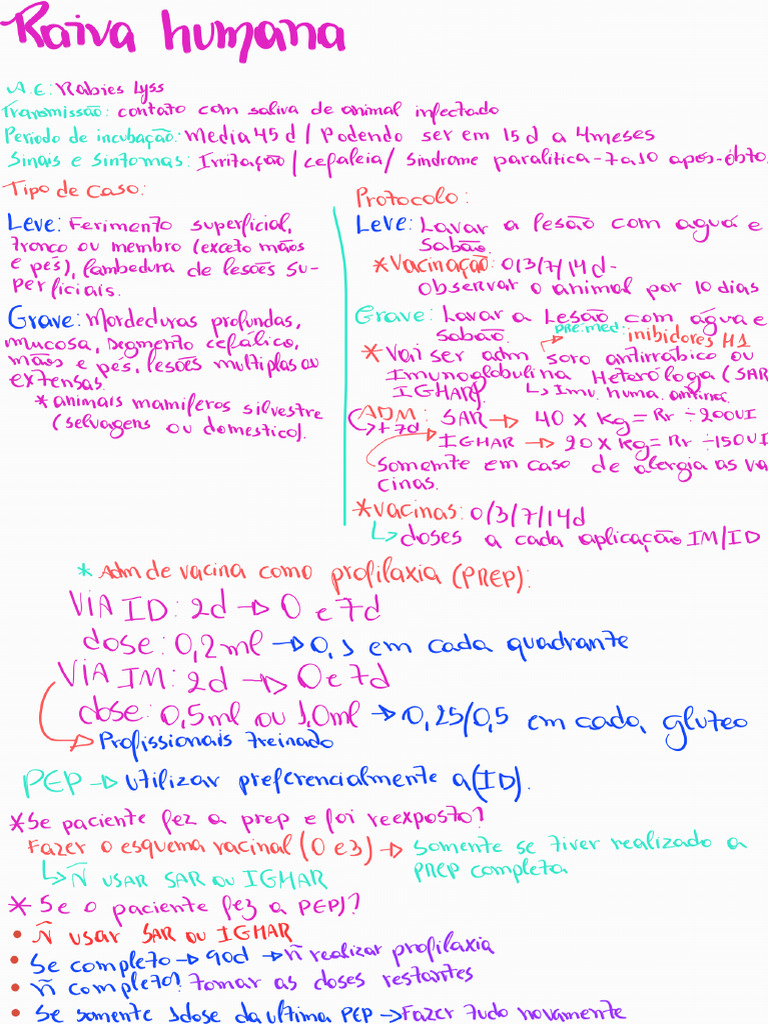 Raiva humana
A.E: Rabies Lyss
Transmissão: contato com saliva de animal infectado
Período de incubação: Media 45 d / Podendo ser em 15 d a 4 meses
Sinais e Sintomas: Irritação / cefaleia / Sindrome paralitica - 7 a 10 após-óbto
Tipo de Caso:
Leve: Ferimento superficial,
tronco ou membro (exceto mãos
e pés), lambedura de lesões Su-
perficiais.
Grave: Mordeduras profundas,
mucosa, segmento cefálico,
mãos e pés, lesões multiplas ou
extensas.
* animais mamiferos silvestre
(selvagens ou domestico).
Protocolo:
Leve: Lavar a lesão com aguá e
Sabão.
* Vacinação: 0/3/7/14 d -
Observar o animal por 10 dias
Grave: Lavar a Lesão com água e
sabão.
pré.med: inibidores H1
* Vai ser adm soro antirrábico ou
Imunoglobulina Heteróloga (SAR
IGHAR)
↳ Imu. huma. antirra.
ADM: SAR → 40 x kg = Rr ÷ 200UI
↳ + 7d
IGHAR → 20 x kg = Rr ÷ 150UI
Somente em caso de alergia as va
cinas.
* Vacinas: 0/3/7/14d
↳ doses a cada aplicação IM/ID
* Adm de vacina como profilaxia (PREP):
VIA ID: 2d → 0 e 7d
dose: 0,2ml → 0,1 em cada quadrante
VIA IM: 2d → 0 e 7d
dose: 0,5ml ou 1,0ml → 0,25/0,5 em cada, gluteo
→ Profissionais treinado
PEP → utilizar preferencialmente a (ID).
* Se paciente fez a prep e foi reexposto?
Fazer o esquema vacinal (0 e 3) → Somente se tiver realizado a
PREP completa
↳ Ñ USAR SAR ou IGHAR
* Se o paciente fez a PEP?
• Ñ usar SAR ou IGHAR
• Se completo → 90d → ñ realizar profilaxia
• ñ completo? tomar as doses restantes
• Se somente 1dose da ultima PEP → Fazer tudo novamente